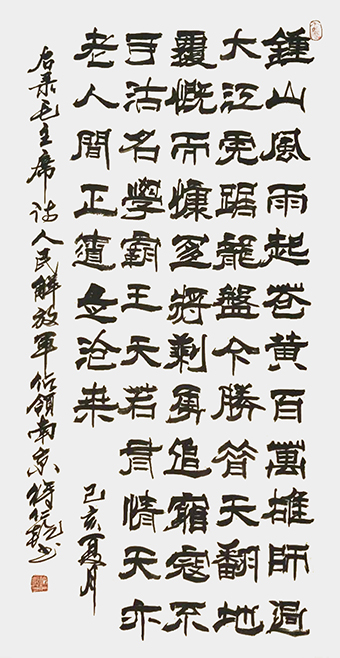 鍾山風雨起苍黄百萬雄師過
大江虎踞龍盤今勝昔天翻地
覆慨而慷宜將剩勇追窮寇不
可沽名學霸王天若有情天亦
老人間正道是沧桑
己亥夏月
右录毛主席诗人民解放軍佔領南京